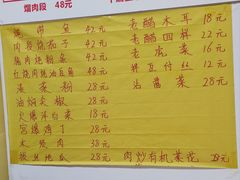 熘肉段 48元
带鱼 42元
肉段烧茄子 42元
猪肉炖粉条 42元
红烧肉炖油豆角 48元
渍菜粉 28元
油焖尖椒 28元
火爆洋白菜 18元
宫爆鸡丁 28元
木须肉 38元
拔丝地瓜 28元
老醋木耳 18元
老醋四样 22元
老虎菜 16元
拌豆付丝 12元
沾酱菜 28元
肉炒有机菜花 28元